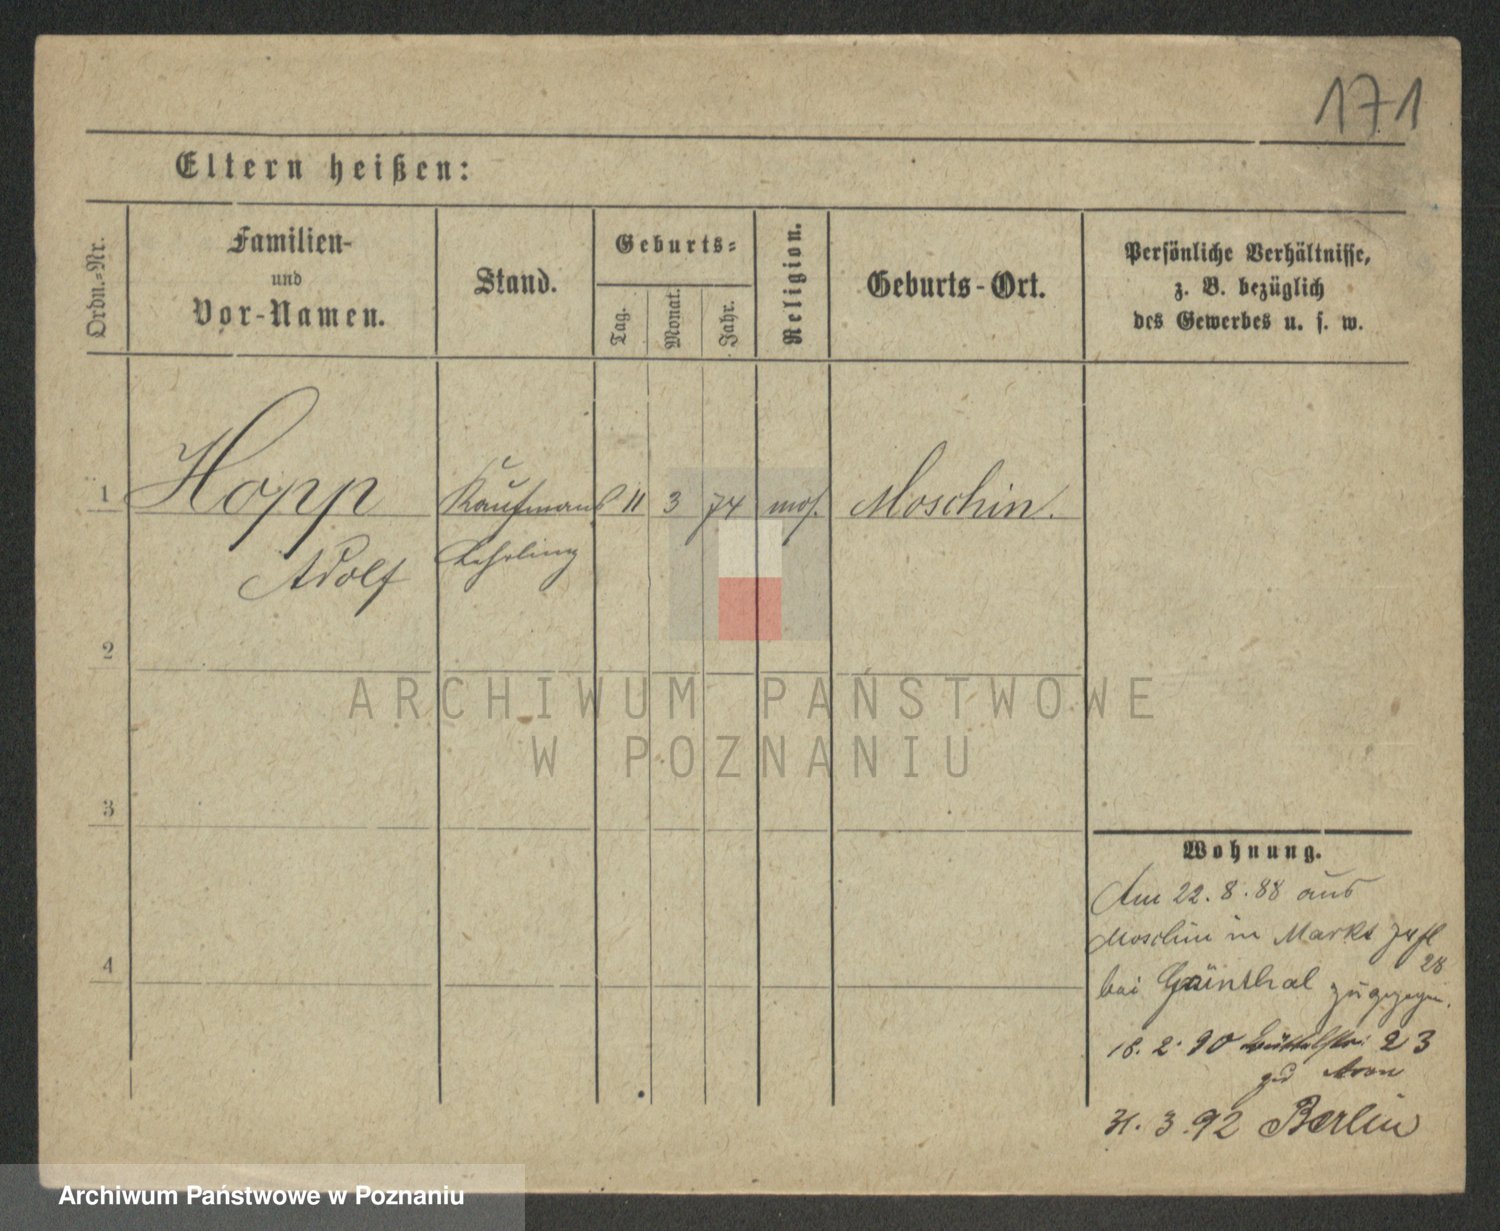 171
Eltern heißen:
Ordn.-Nr.
Familien-
und
Vor-Namen.
Stand.
Geburts-
Tag.
Monat.
Jahr.
Religion.
Geburts-Ort.
Persönliche Verhältnisse,
z. B. bezüglich
des Gewerbes u. s. w.
1 Hopp Kaufmanns 11 3 74 mos. Moschin.
Adolf Lehrling
2
ARCHIWUM PAŃSTWOWE
W POZNANIU
3
Wohnung.
Am 22. 8. 88 aus
Moschin in Markt
28
4
bei Grünthal zugezogen.
18. 2. 90 Büttelstr. 23
Aron
31. 3. 92 Berlin
Archiwum Państwowe w Poznaniu